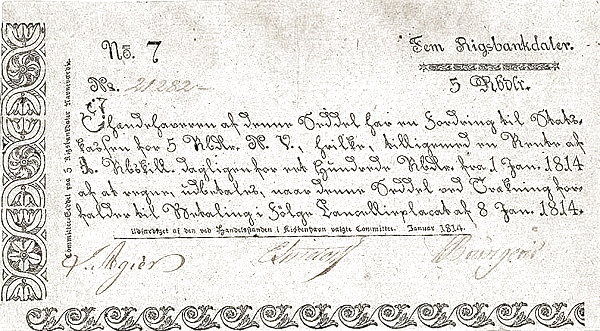 No. 7
Fem Rigsbankdaler.
No. 21282
5 Rbdlr.
Ihændehaveren af denne Seddel har en Fordring til Stats-
kassen for 5 Rbdlr. N. V., hvilke, tilligemed en Rente af
Rbskill. dagligen for ett Hundrede Rbdlr. fra 1 Jan. 1814
af at regne, udbetales, naar denne Seddel ved Trækning for-
falder til Betaling i Følge Cancelliplacat af 8 Jan. 1814.
Udfærdiget af den ved Handelsstanden i Kiøbenhavn valgte Committee. Januar 1814.
Committee-Seddel paa 5 Rigsbankdaler Navneværdie.